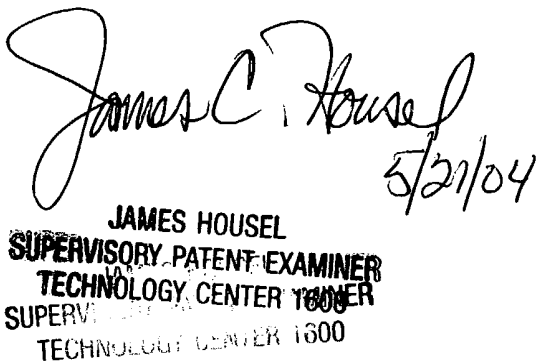 James C. Housel
5/27/04
JAMES HOUSEL
SUPERVISORY PATENT EXAMINER
TECHNOLOGY CENTER 1600
SUPERV
TECHNOLOGY CENTER 1600